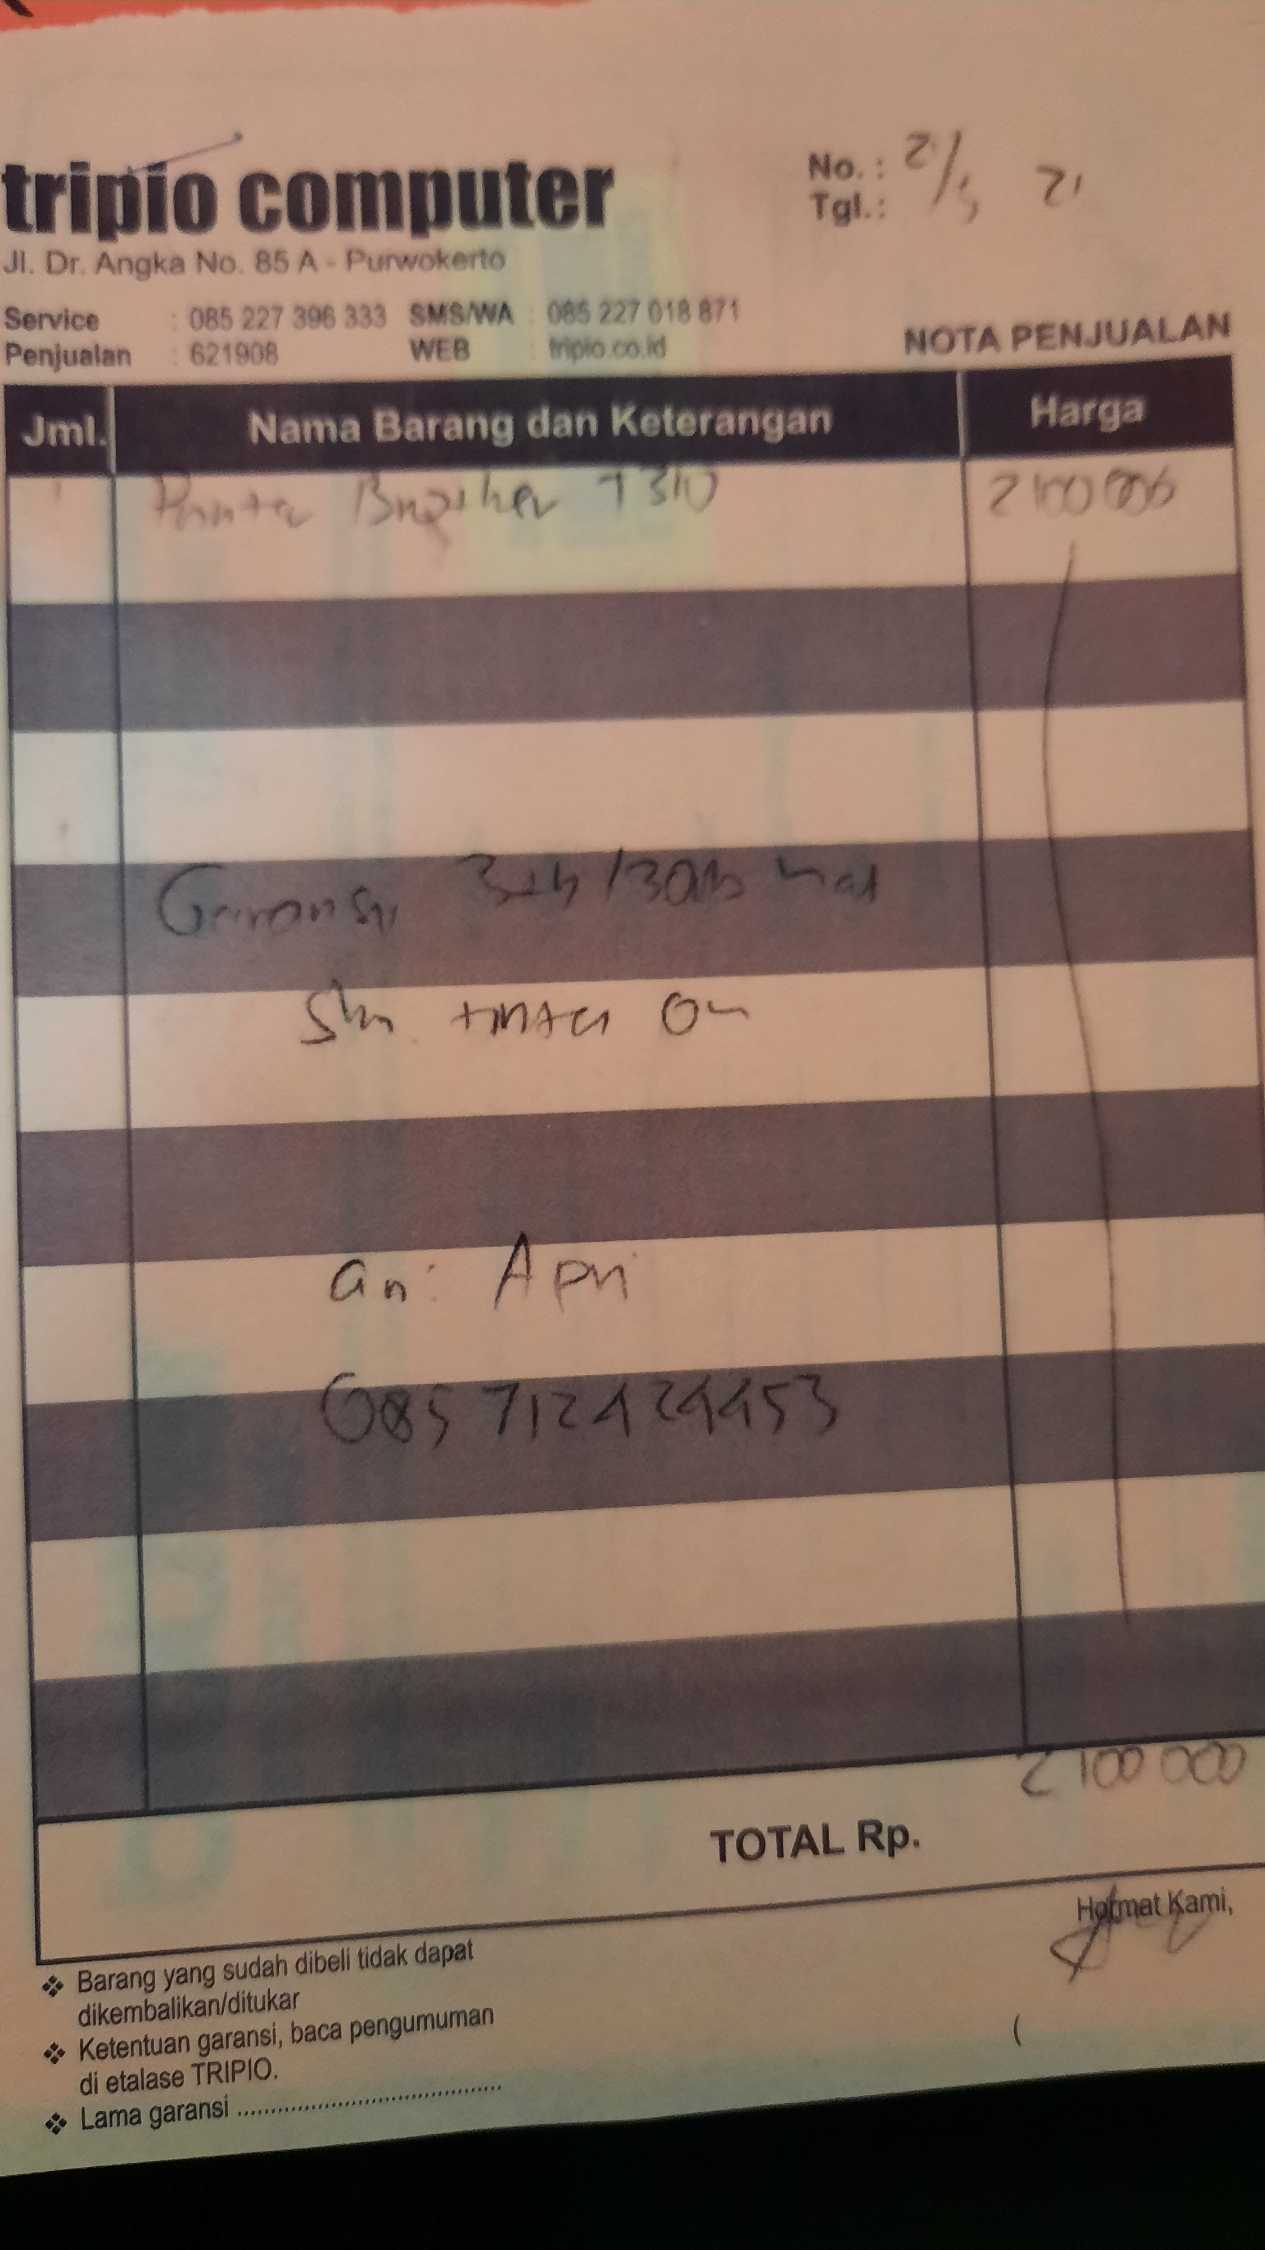 tripio computer
Jl. Dr. Angka No. 85 A - Purwokerto
Service : 085 227 396 333 SMS/WA : 085 227 018 871
Penjualan : 621908 WEB : tripio.co.id
No. :
Tgl. : 2/5 21
NOTA PENJUALAN
Jml. Nama Barang dan Keterangan Harga
Printer Brother T310 2100 000
Garansi 3th /
tinta
an: Apri
085 712424453
2100 000
TOTAL Rp.
Hormat Kami,
(
❖ Barang yang sudah dibeli tidak dapat
dikembalikan/ditukar
❖ Ketentuan garansi, baca pengumuman
di etalase TRIPIO.
❖ Lama garansi ........................................